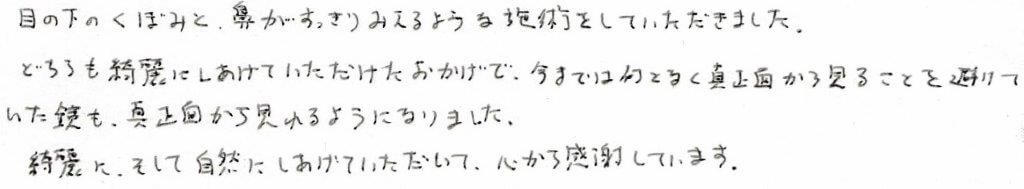 目の下のくぼみと、鼻がすっきりみえるような施術をしていただきました。
どちらも綺麗にしあげていただけたおかげで、今までは何となく真正面から見ることを避けて
いた鏡も、真正面から見れるようになりました。
綺麗に、そして自然にしあげていただいて、心から感謝しています。